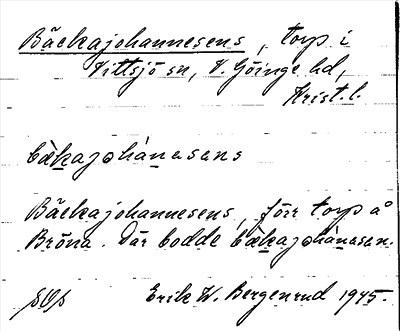 Bäckajohannesens, torp i
Vittsjö sn, V. Göinge hd,
Krist. l.
bækajohànasens
Bäckajohannesens, förr torp å
Bröna. Där bodde bækajohànasen.
Erik W. Bergenrud 1945.